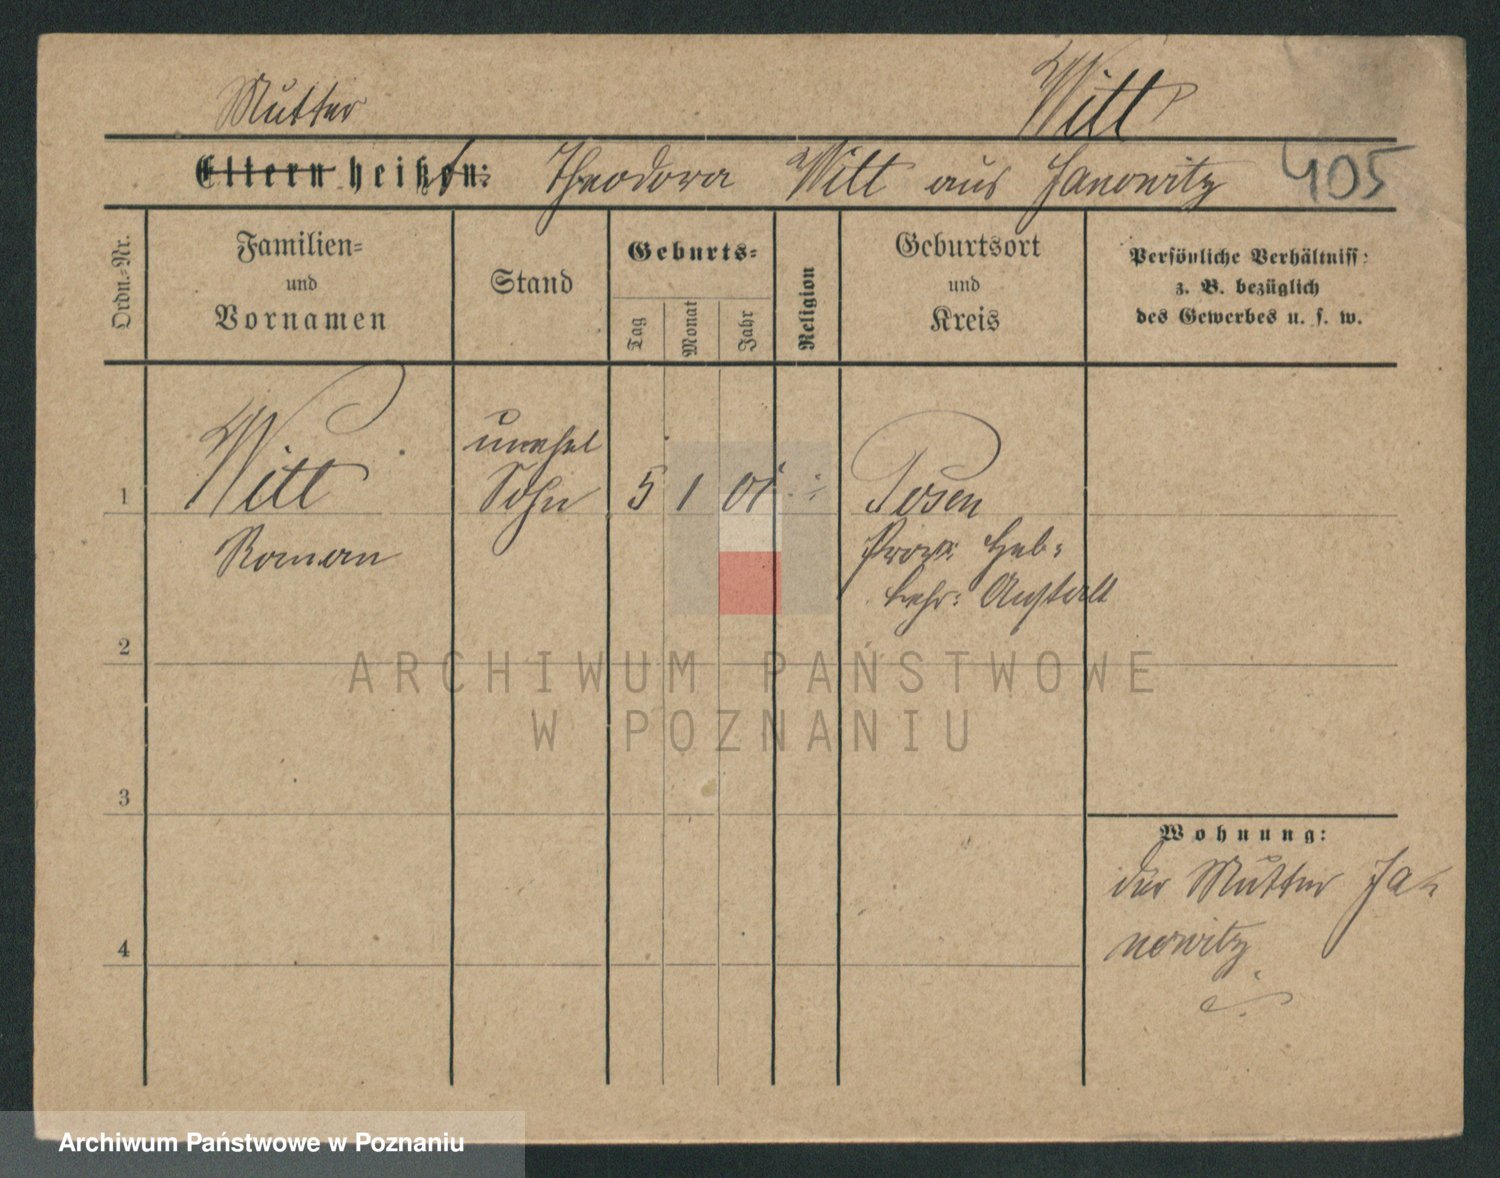 Witt
Mutter
Eltern heißen: Theodora Witt aus Janowitz 405
Ordn.-Nr.
Familien-
und
Vornamen
Stand
Geburts-
Tag
Monat
Jahr
Religion
Geburtsort
und
Kreis
Persönliche Verhältniss:
z. B. bezüglich
des Gewerbes u. s. w.
1 Witt unehel Sohn 5 1 01 Posen
Roman Prov: Heb:
Lehr: Anstalt
2
3
4
Wohnung:
der Mutter Ja-
nowitz
ARCHIWUM PAŃSTWOWE
W POZNANIU
Archiwum Państwowe w Poznaniu